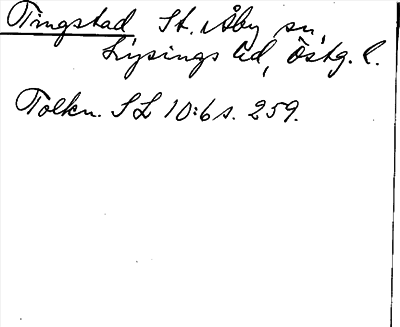 Tingstad St. Åby sn,
Lysings hd, Östg. l.
Tolkn. SL 10:6 s. 259.